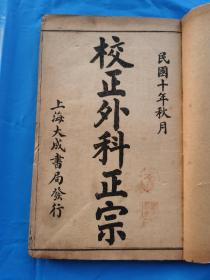 民國十年秋月
校正外科正宗
上海大成書局發行